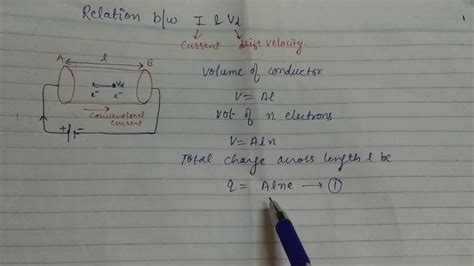 Relation b/w I & Vd
Current drift velocity
l
A B
Vd
e⁻ e⁻
Conventional
Current
+ -
Volume of conductor
V = Al
Vol. of n electrons
V = Aln
Total charge across length l be
q = Alne → ①